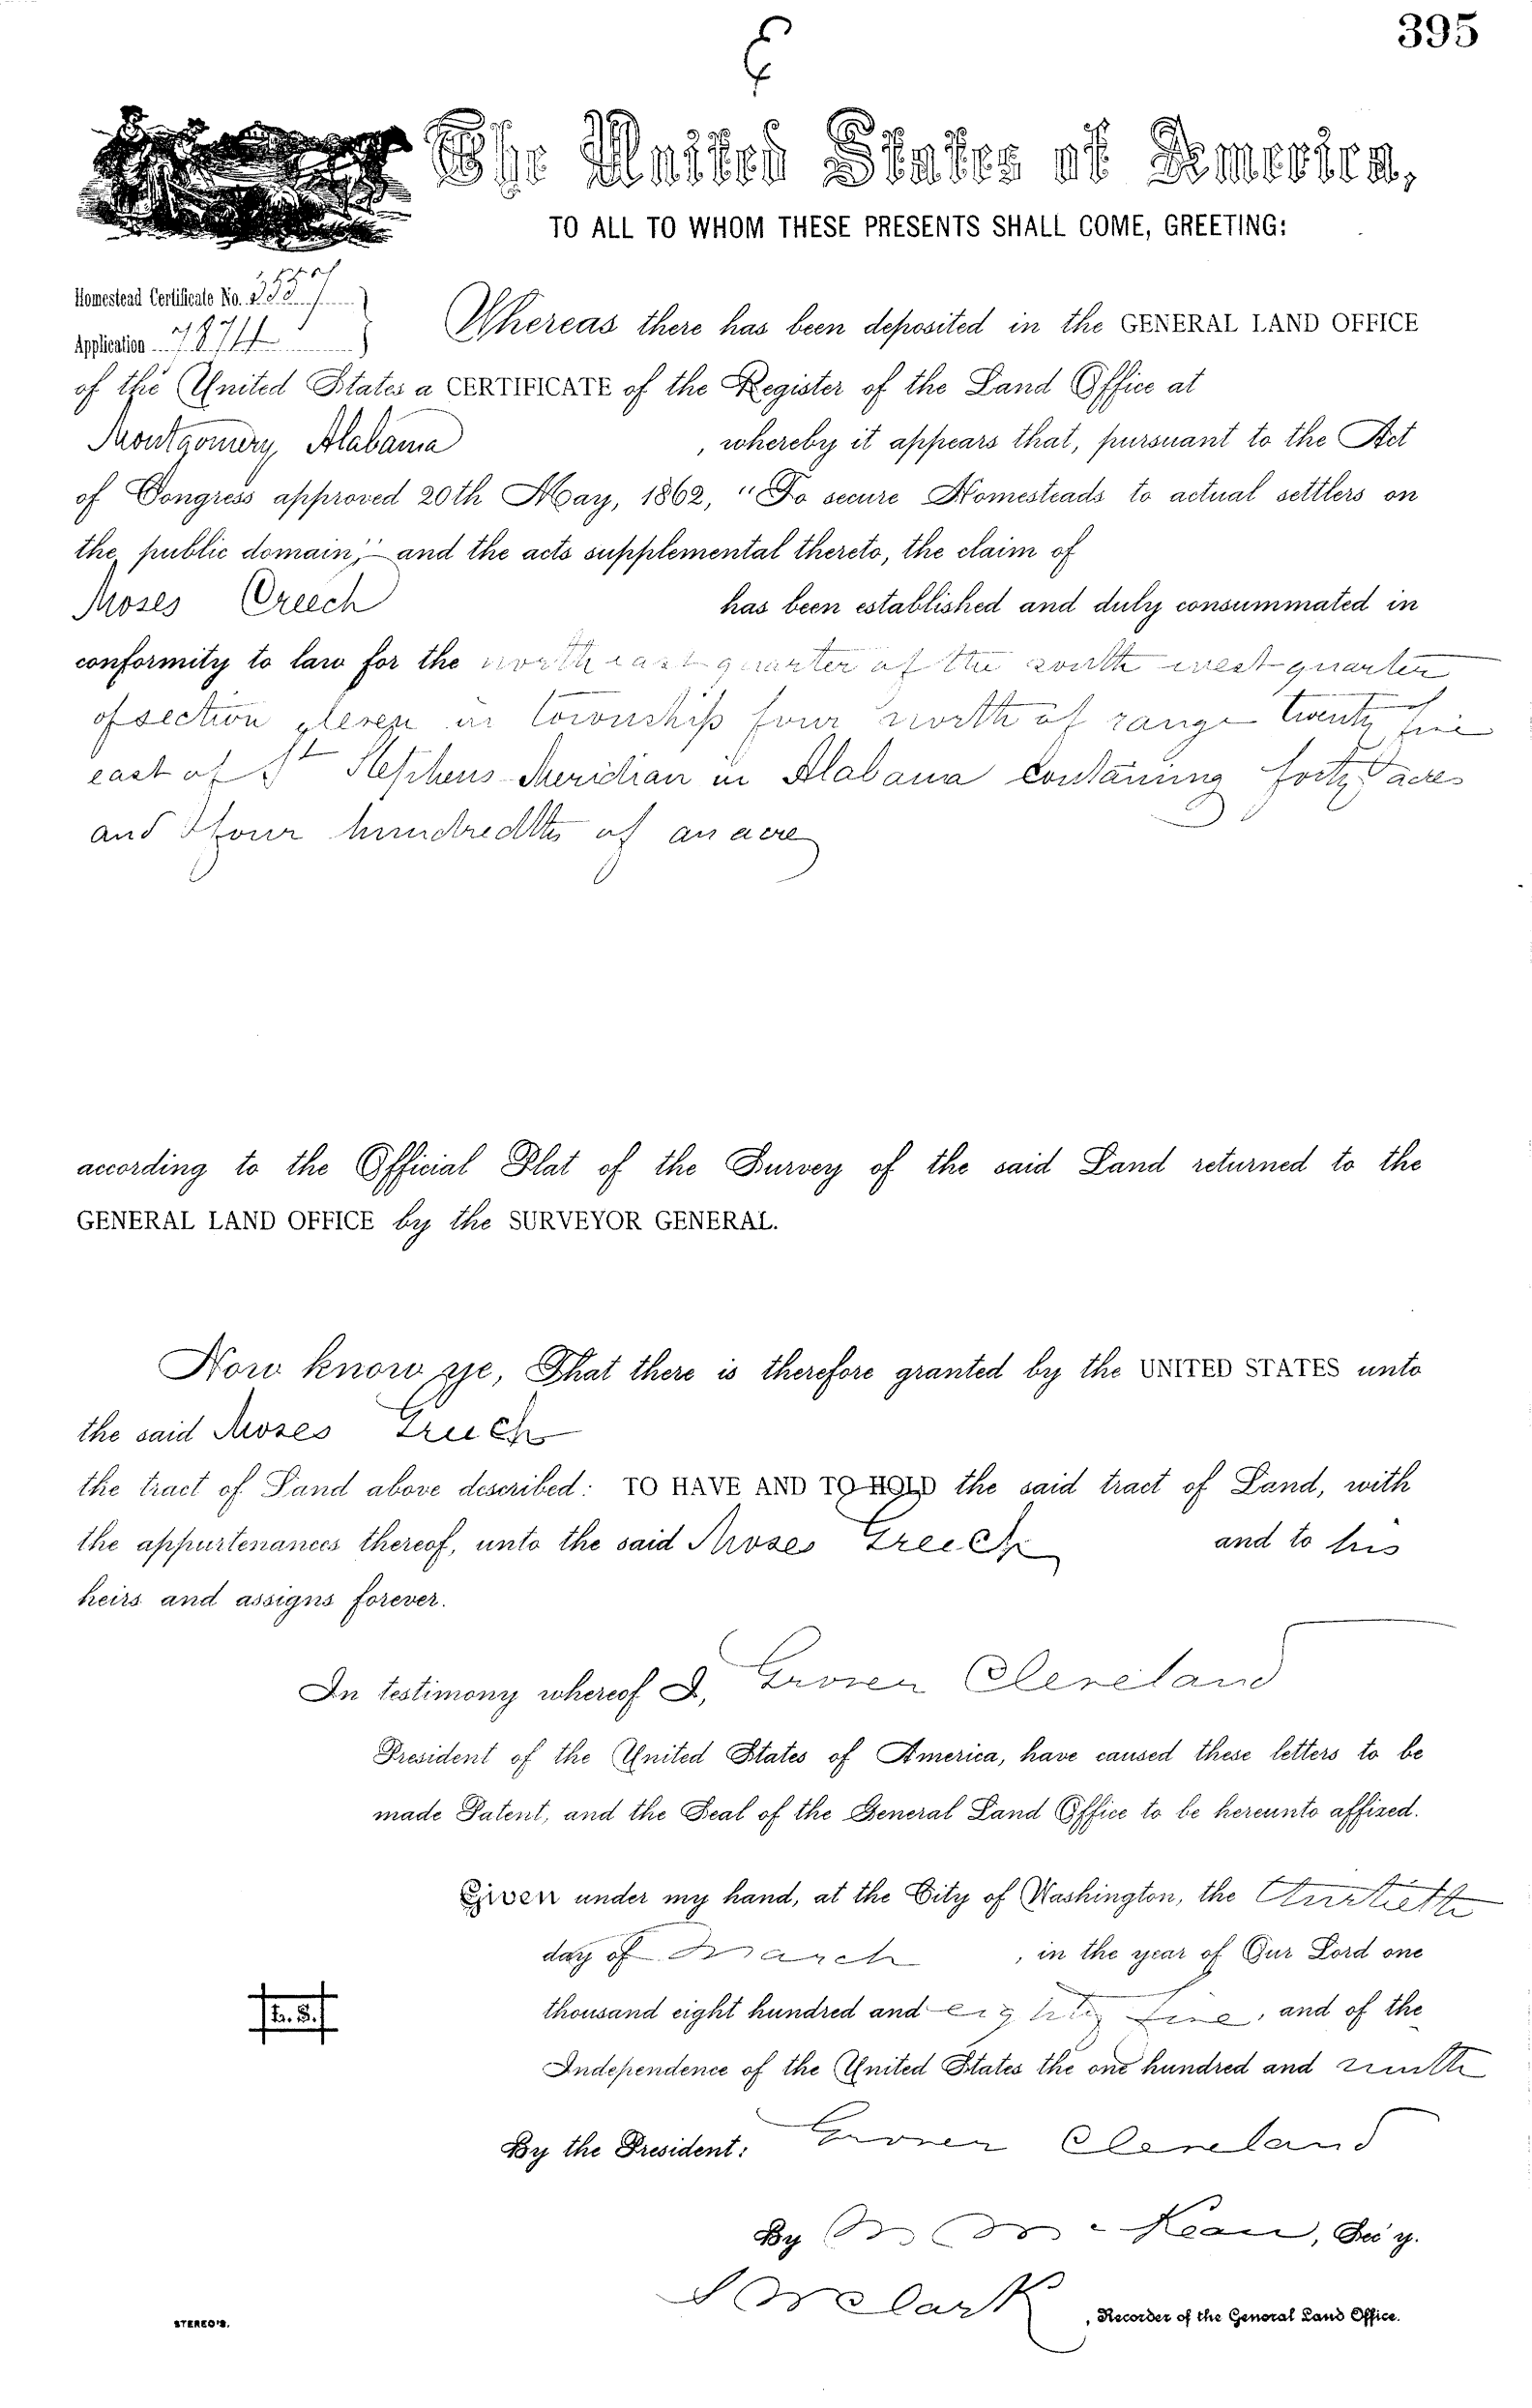 395
The United States of America,
TO ALL TO WHOM THESE PRESENTS SHALL COME, GREETING:
Homestead Certificate No. 3557
Application 7874
Whereas there has been deposited in the GENERAL LAND OFFICE
of the United States a CERTIFICATE of the Register of the Land Office at
Montgomery Alabama , whereby it appears that, pursuant to the Act
of Congress approved 20th May, 1862, "To secure Homesteads to actual settlers on
the public domain," and the acts supplemental thereto, the claim of
Moses Creech has been established and duly consummated in
conformity to law for the north east quarter of the south west quarter
of section eleven in township four north of range twenty five
east of St Stephens Meridian in Alabama containing forty acres
and four hundredths of an acre
according to the Official Plat of the Survey of the said Land returned to the
GENERAL LAND OFFICE by the SURVEYOR GENERAL.
Now know ye, That there is therefore granted by the UNITED STATES unto
the said Moses Creech
the tract of Land above described: TO HAVE AND TO HOLD the said tract of Land, with
the appurtenances thereof, unto the said Moses Creech and to his
heirs and assigns forever.
In testimony whereof I, Grover Cleveland
President of the United States of America, have caused these letters to be
made Patent, and the Seal of the General Land Office to be hereunto affixed.
Given under my hand, at the City of Washington, the thirtieth
day of March , in the year of Our Lord one
thousand eight hundred and eighty five, and of the
Independence of the United States the one hundred and ninth
L. S.
By the President: Grover Cleveland
By M McKean, Sec'y.
S W Clark , Recorder of the General Land Office.
STEREO'S.